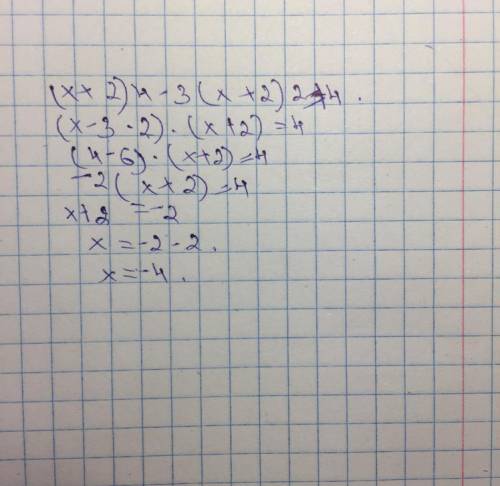 (x+2)4-3(x+2)2=4.
(x-3·2)·(x+2)=4
(4-6)·(x+2)=4
-2(x+2)=4
x+2=-2
x=-2-2.
x=-4.